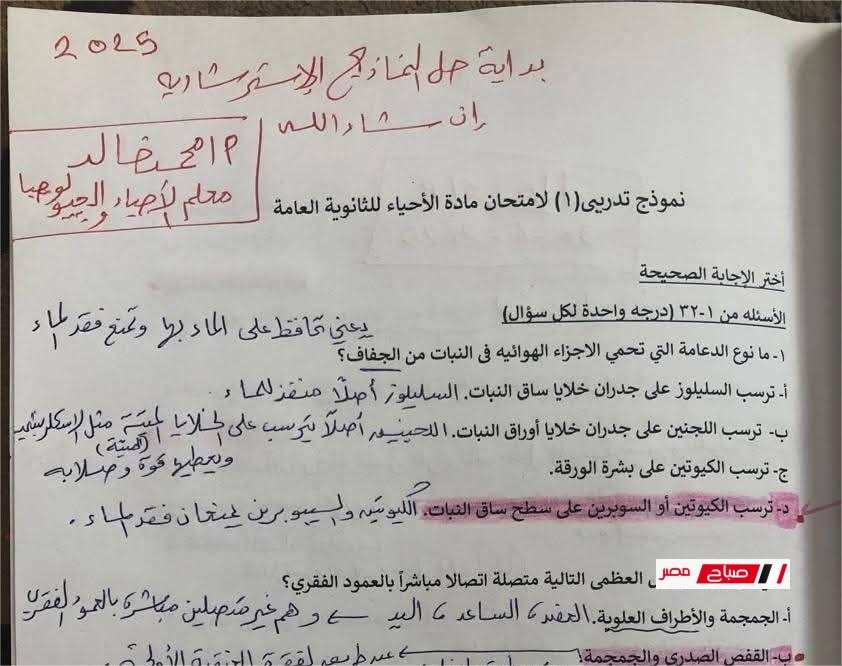 2025
بداية حل النماذج الإسترشاديه
إن شاء الله
م/محمد خالد
معلم الأحياء والجيولوجيا
نموذج تدريبى(١) لامتحان مادة الأحياء للثانوية العامة
أختر الإجابة الصحيحة
الأسئله من ١-٣٢ (درجه واحدة لكل سؤال)
يعني تحافظ على الماء بها وتمنع فقد الماء
١- ما نوع الدعامة التي تحمي الاجزاء الهوائيه فى النبات من الجفاف؟
أ- ترسب السليلوز على جدران خلايا ساق النبات. السليلوز أصلًا منفذ للماء.
ب- ترسب اللجنين على جدران خلايا أوراق النبات. اللجنين أصلًا يترسب على الخلايا الميتة مثل
(الميتة)
ج- ترسب الكيوتين على بشرة الورقة. ويعطيها قوة وصلابه
د- ترسب الكيوتين أو السوبرين على سطح ساق النبات. الكيوتين والسيوبرين يمنعان فقد الماء.
صباح مصر
العظمى التالية متصلة اتصالا مباشراً بالعمود الفقري؟
أ- الجمجمة والأطراف العلوية. العضد، الساعد، اليد ← وهم غير متصلين مباشرة بالعمود الفقرى
ب- القفص الصدري والجمجمة.